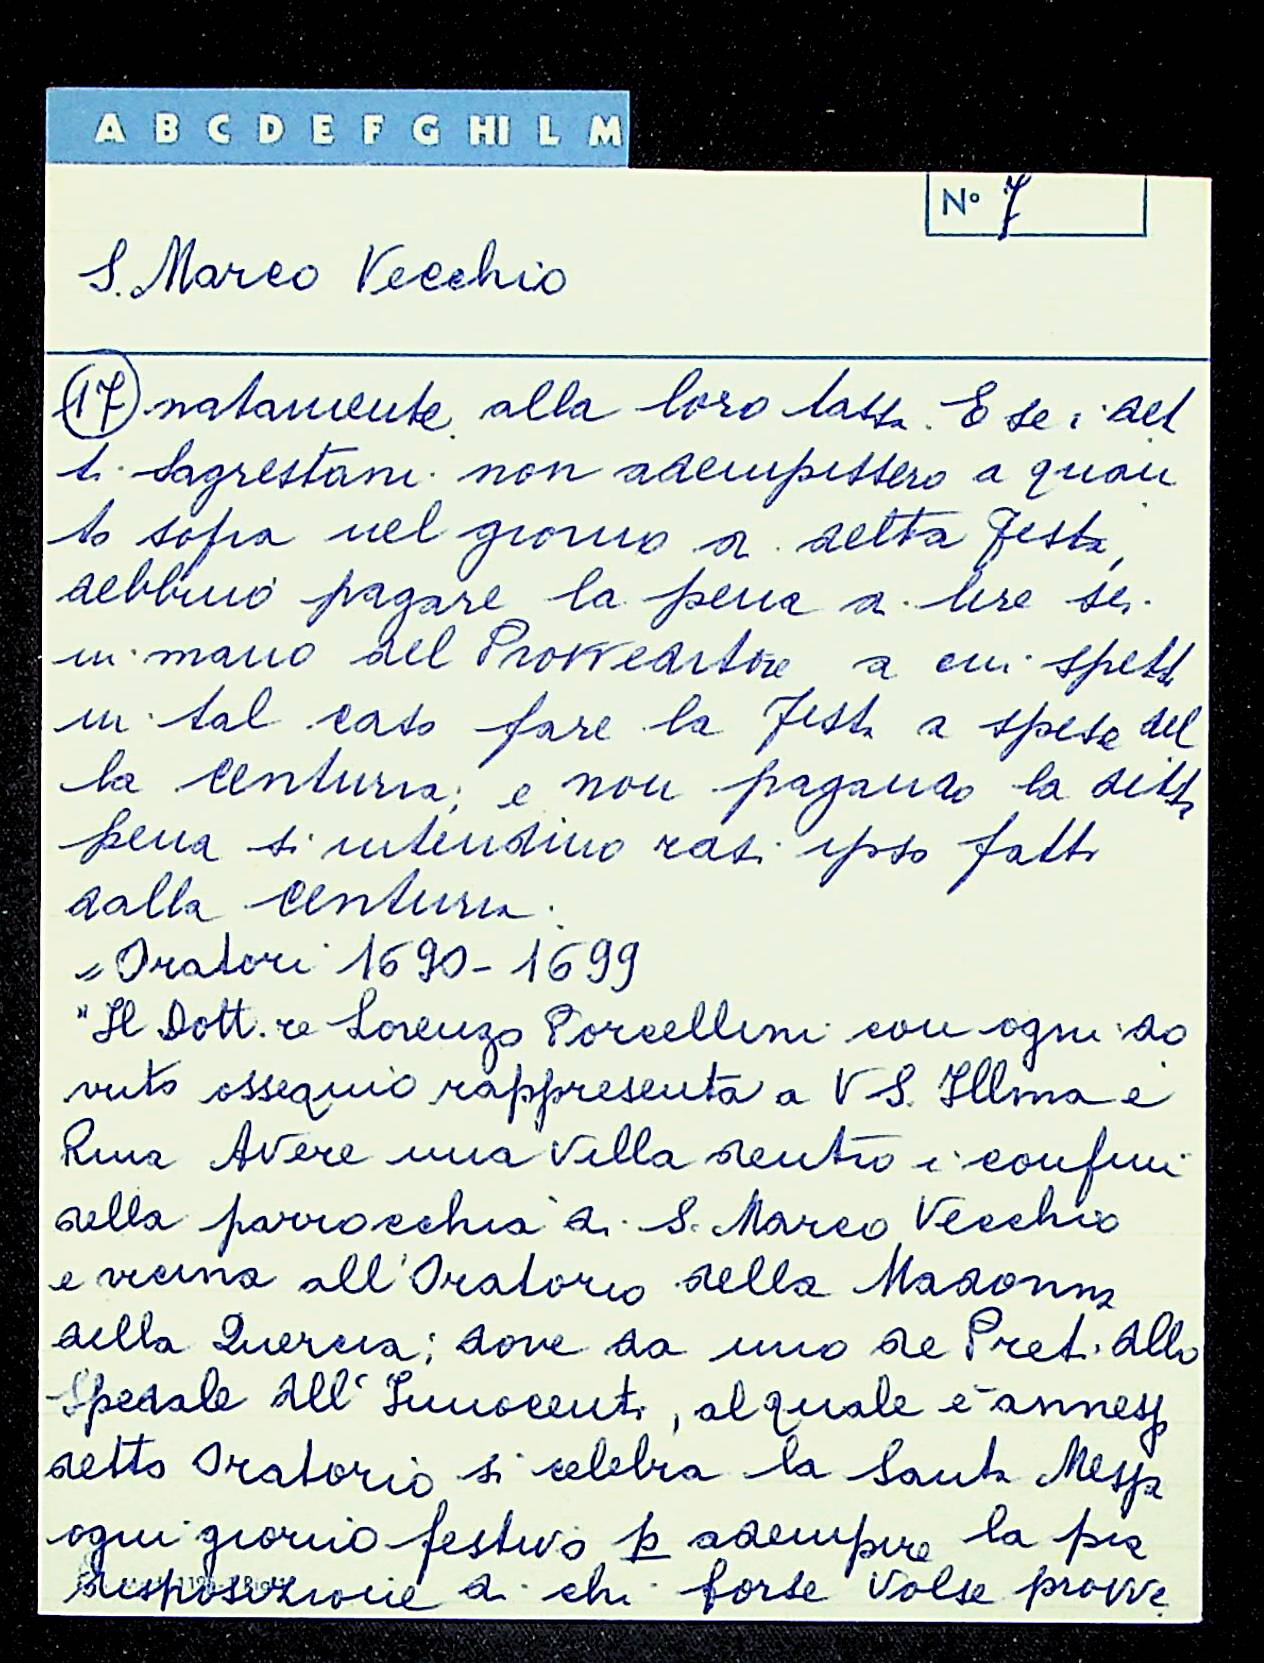 A B C D E F G HI L M
Nº 7
S. Marco Vecchio
(17) natamente alla loro tassa. E se i det
ti Sagrestani non adempissero a quan
to sopra nel giorno di detta Festa,
debbino pagare la pena di lire sei
in mano del Provveditore a cui spetti
in tal caso fare la Festa a spese del
la Centuria; e non pagando la detta
pena si intendino rasi ipso fatto
dalla Centuria.
= Oratori 1690-1699
"Il Dott.re Lorenzo Porcellini con ogni do
vuto ossequio rappresenta a VS. Illma e
Rma Avere una Villa dentro i confini
della parrocchia di S. Marco Vecchio
e vicina all'Oratorio della Madonna
della Quercia; dove da uno de Preti dello
Spedale dell'Innocenti, al quale è annesso
detto Oratorio si celebra la Santa Messa
ogni giorno festivo p adempire la pia
disposizione di chi forse volse provve